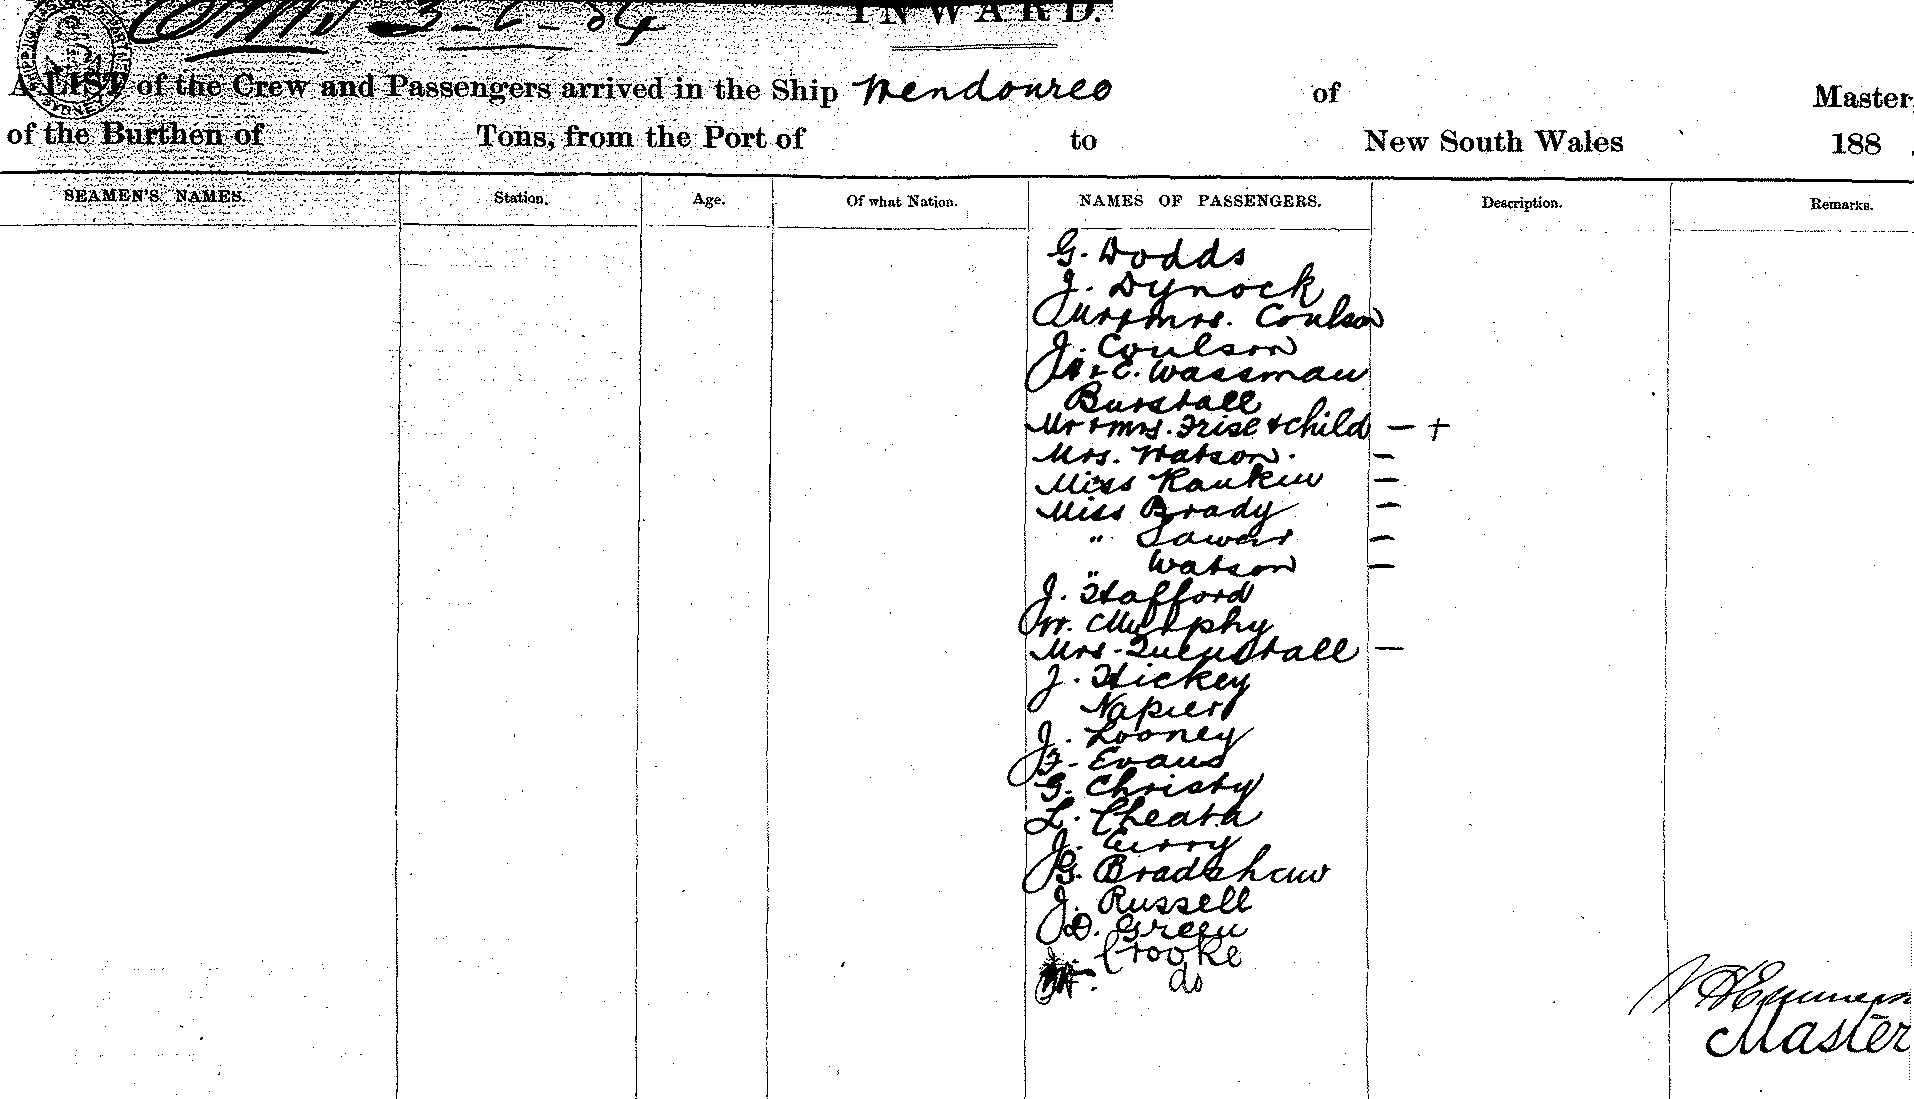 INWARD.
A LIST of the Crew and Passengers arrived in the Ship Wendouree of Master
of the Burthen of Tons, from the Port of to New South Wales 188
SEAMEN'S NAMES. Station. Age. Of what Nation. NAMES OF PASSENGERS. Description. Remarks.
G. Dodds
J. Dynock
Mr + Mrs. Coulson
J. Coulson
+ E. Wassman
Burstall
Mr + Mrs. Frise + child - +
Mrs. Watson. -
Miss Rankin -
Miss Brady -
" -
" Watson -
J. Stafford
W. Murphy
Mrs. -
J. Hickey
Napier
J. Looney
F. Evans
G. Christy
L. Cheata
J.
G. Bradshaw
J. Russell
D. Green
Crooke
do
Master